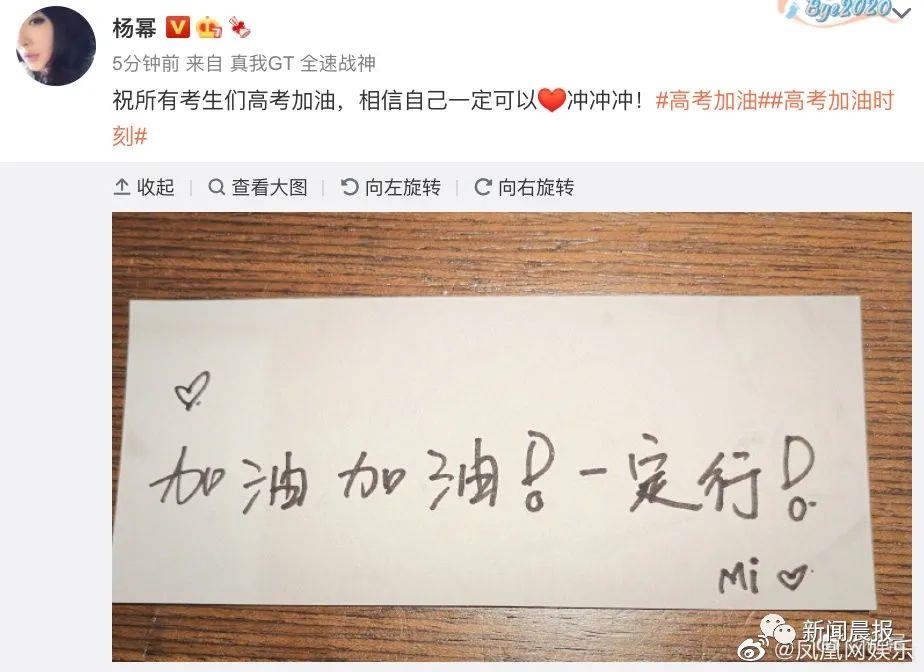 Bye2020
杨幂
5分钟前 来自 真我GT 全速战神
祝所有考生们高考加油，相信自己一定可以❤️冲冲冲！#高考加油##高考加油时
刻#
收起 | 查看大图 | 向左旋转 | 向右旋转
加油加油！一定行！
Mi
新闻晨报
@凤凰网娱乐